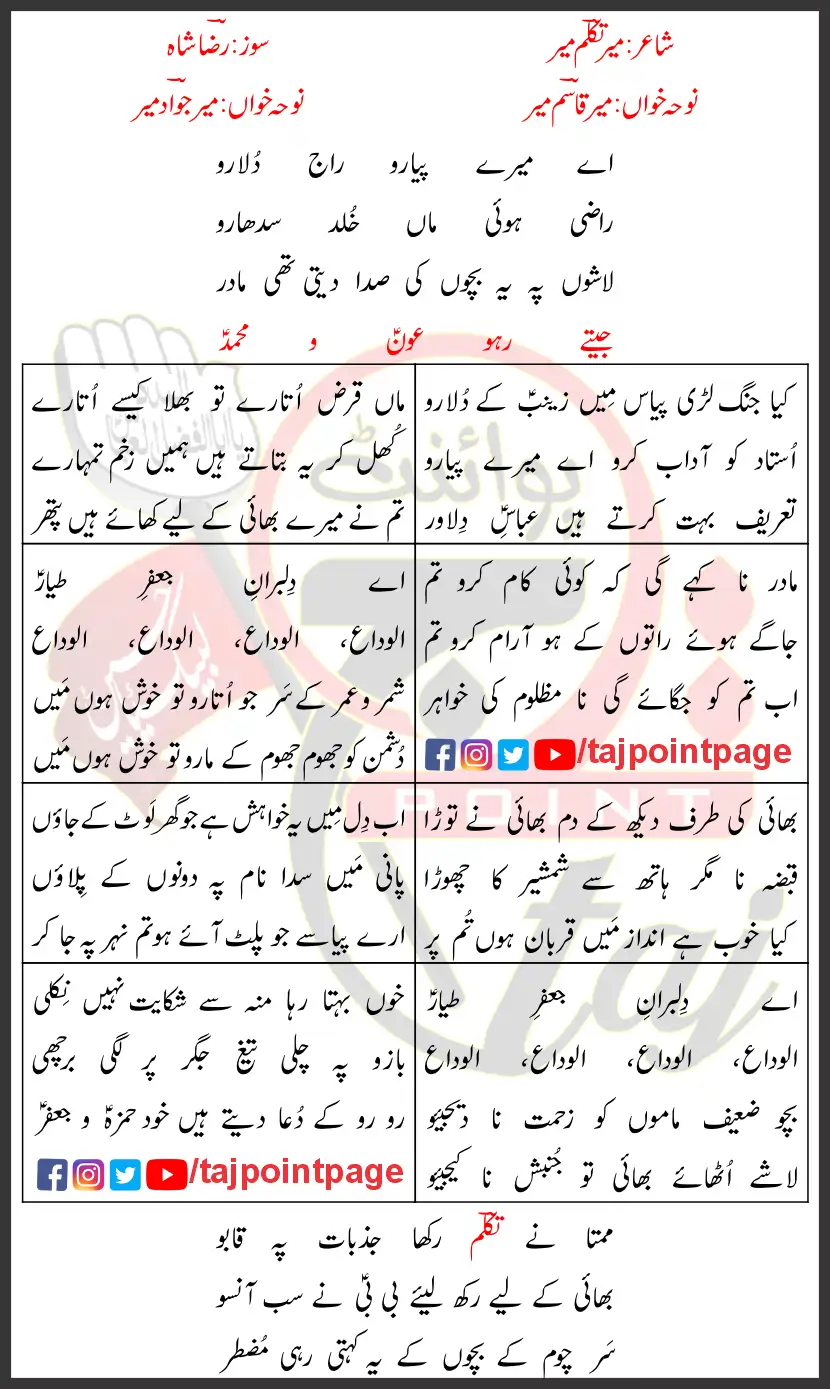 شاعر: میر تکلّم میر
سوز: رضا شاہ
نوحہ خواں: میر قاسم میر
نوحہ خواں: میر جواد میر
اے میرے پیارو راج دُلارو
راضی ہوئی ماں خُلد سدھارو
لاشوں پہ یہ بچوں کی صدا دیتی تھی مادر
جیتے رہو عونؑ و محمدؑ
کیا جنگ لڑی پیاس مِیں زینبؑ کے دُلارو
اُستاد کو آداب کرو اے میرے پیارو
تعریف بہت کرتے ہیں عباسِؑ دِلاور
ماں قرض اُتارے تو بھلا کیسے اُتارے
کُھل کر یہ بتاتے ہیں ہمیں زخم تمہارے
تم نے میرے بھائی کے لیے کھائے ہیں پتھر
مادر نا کہے گی کہ کوئی کام کرو تم
جاگے ہوئے راتوں کے ہو آرام کرو تم
اب تم کو جگائے گی نا مظلوم کی خواہر
/tajpointpage
اے دِلبرانِ جعفرِ طیارؑ
الوداع، الوداع، الوداع، الوداع
شمر و عمر کے سَر جو اُتارو تو خوش ہوں مَیں
دُشمن کو جھوم جھوم کے مارو تو خوش ہوں مَیں
بھائی کی طرف دیکھ کے دم بھائی نے توڑا
قبضہ نا مگر ہاتھ سے شمشیر کا چھوڑا
کیا خوب ہے انداز مَیں قربان ہوں تُم پر
اب دِل مِیں یہ خواہش ہے جو گھر لَوٹ کے جاؤں
پانی مَیں سدا نام پہ دونوں کے پِلاؤں
ارے پیاسے جو پلٹ آئے ہو تم نہر پہ جا کر
اے دِلبرانِ جعفرِ طیارؑ
الوداع، الوداع، الوداع، الوداع
بچو ضعیف ماموں کو زحمت نا دیجیئو
لاشے اُٹھائے بھائی تو جُنبش نا کیجیئو
خوں بہتا رہا منہ سے شکایت نہیں نِکلی
بازو پہ چلی تیغ جگر پر لگی برچھی
رو رو کے دُعا دیتے ہیں خود حمزہؑ و جعفرؑ
/tajpointpage
ممتا نے تکلّم رکھا جذبات پہ قابو
بھائی کے لیے رکھ لیئے بی بیؑ نے سب آنسو
سَر چوم کے بچوں کے یہ کہتی رہی مُضطر
بوائنٹ
تاج
POINT
taj